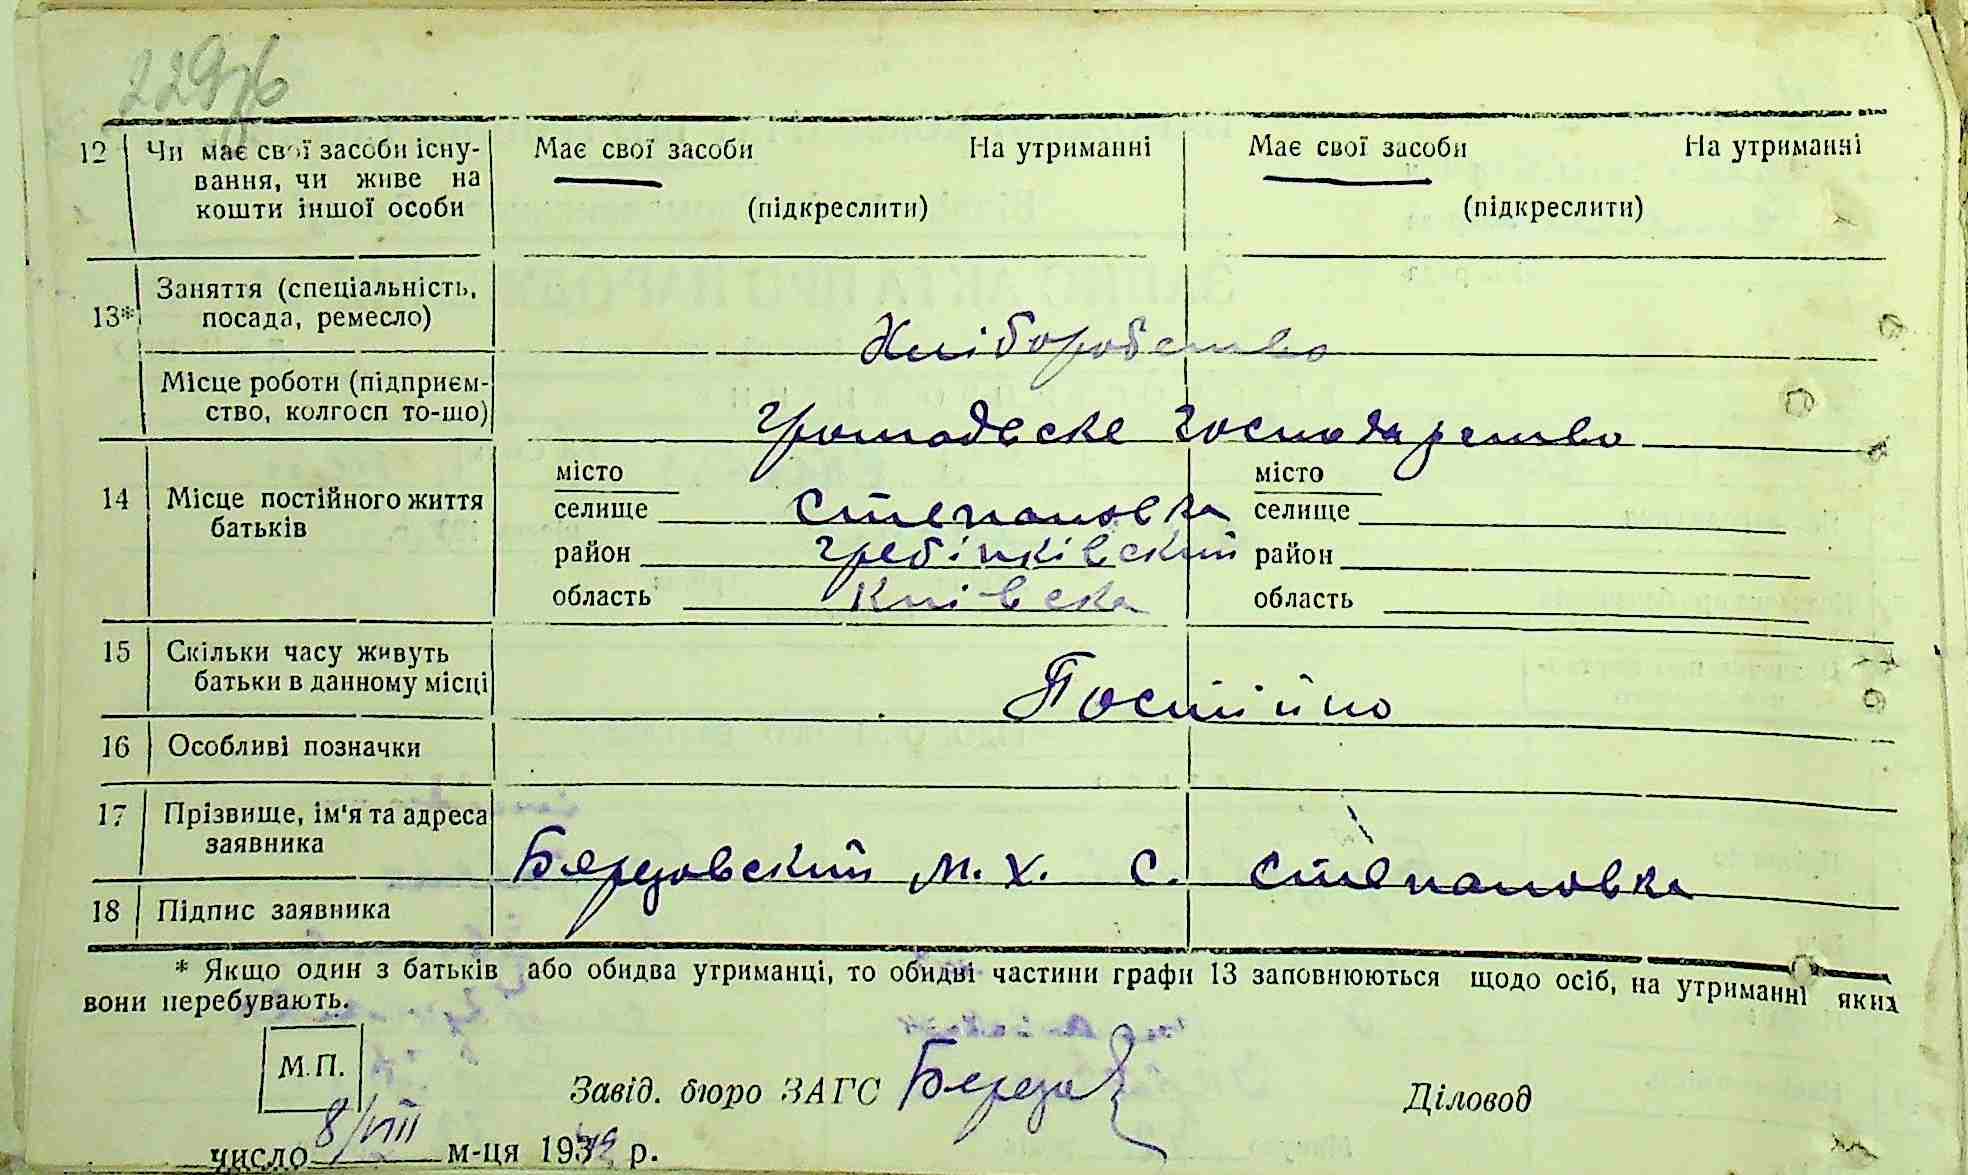 229
12 Чи має свої засоби існу- Має свої засоби На утриманні Має свої засоби На утриманні
вання, чи живе на
кошти іншої особи (підкреслити) (підкреслити)
Заняття (спеціальність,
13* посада, ремесло) Хліборобство
Місце роботи (підприєм-
ство, колгосп то-що) громадське господарство
місто місто
14 Місце постійного життя селище Степановка селище
батьків
район Гребінківский район
область Київска область
15 Скільки часу живуть
батьки в данному місці Постійно
16 Особливі позначки
17 Прізвище, ім'я та адреса
заявника Березовский М. Х. С. Степановка
18 Підпис заявника
* Якщо один з батьків або обидва утриманці, то обидві частини графи 13 заповнюються щодо осіб, на утриманні яких
вони перебувають.
М.П.
Завід. бюро ЗАГС Діловод
число 8/VIII м-ця 194 р.